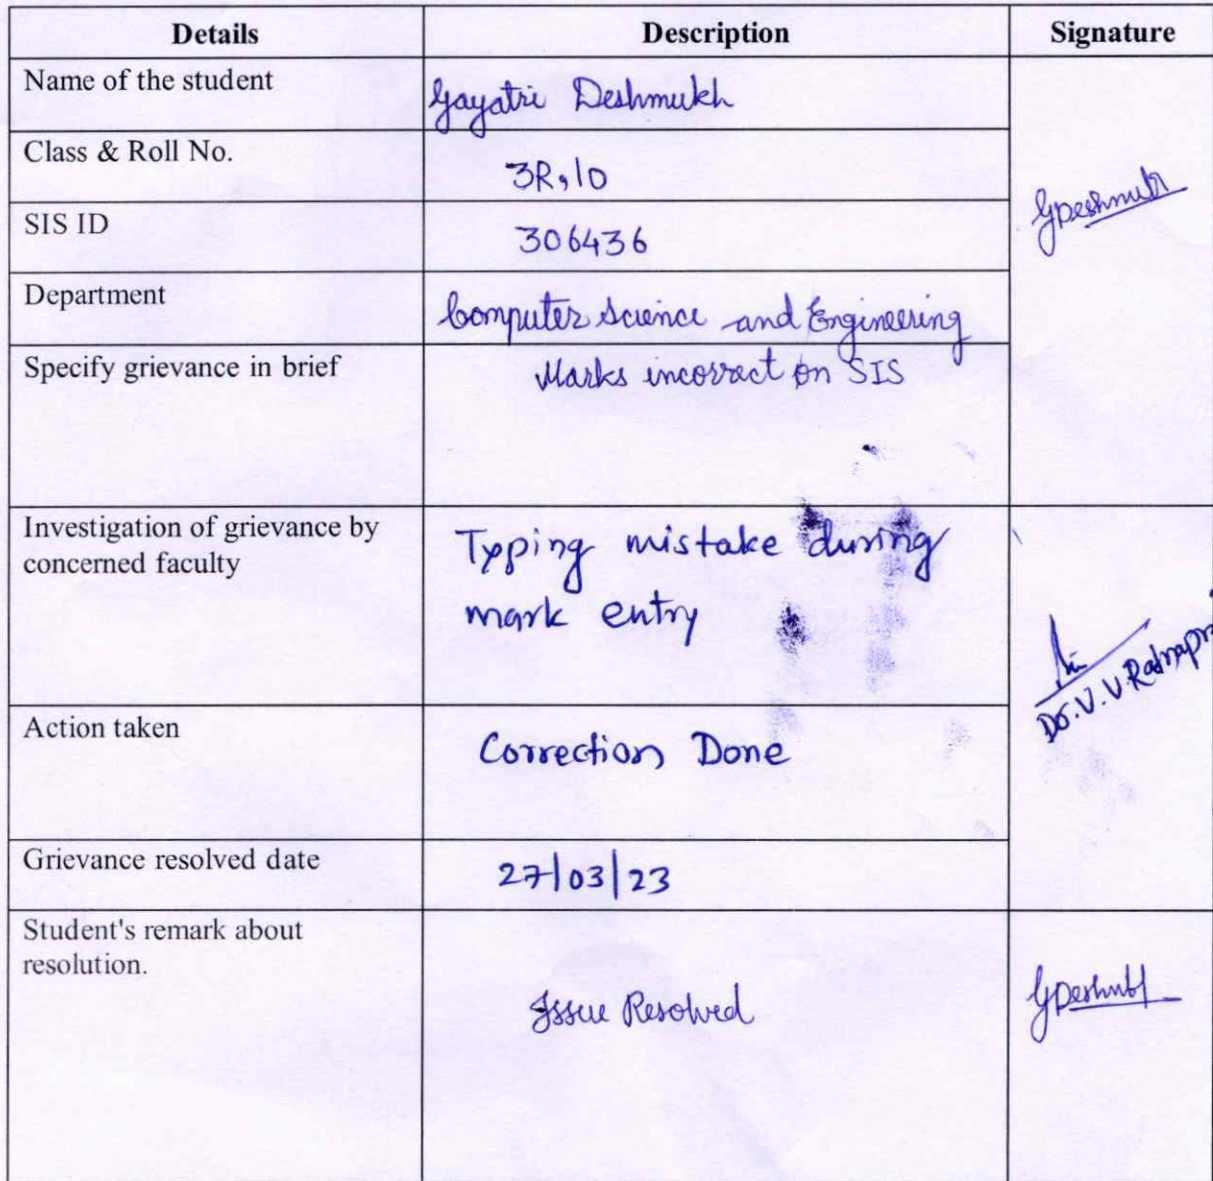 Details Description Signature
Name of the student Gayatri Deshmukh
Class & Roll No. 3R, 10
SIS ID 306436
GDeshmukh
Department Computer Science and Engineering
Specify grievance in brief Marks incorrect on SIS
Investigation of grievance by
concerned faculty
Typing mistake during
mark entry
Dr. V. V.
Action taken Correction Done
Grievance resolved date 27/03/23
Student's remark about
resolution.
Issue Resolved